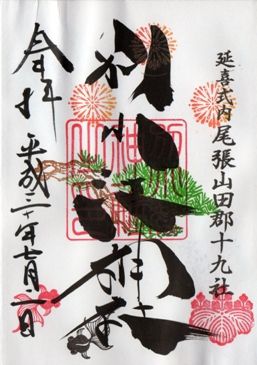 延喜式内 尾張山田郡十九社
別小江神社
奉拝
平成三十年七月